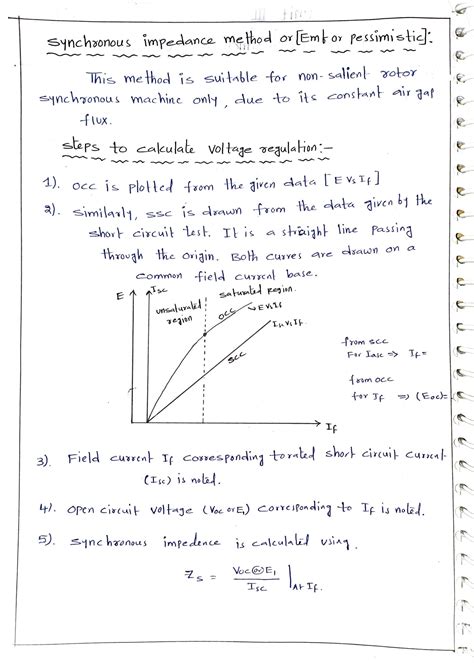 synchronous impedance method or [Emf or pessimistic]:
This method is suitable for non-salient rotor
synchronous machine only, due to its constant air gap
flux.
steps to calculate voltage regulation:-
1). OCC is plotted from the given data [E Vs If]
2). similarly, ssc is drawn from the data given by the
short circuit test. It is a straight line passing
through the origin. Both curves are drawn on a
common field current base.
E
Isc
unsaturated
region
saturated Region.
OCC
E Vs If
Isc Vs If.
SCC
If
from scc
For Iasc ⇒ If=
from occ
for If ⇒ (Eoc)=
3). Field current If corresponding to rated short circuit current
(Isc) is noted.
4). open circuit voltage (Voc or E1) corresponding to If is noted.
5). synchronous impedence is calculated using.
Zs = Voc or E1 / Isc | At If.